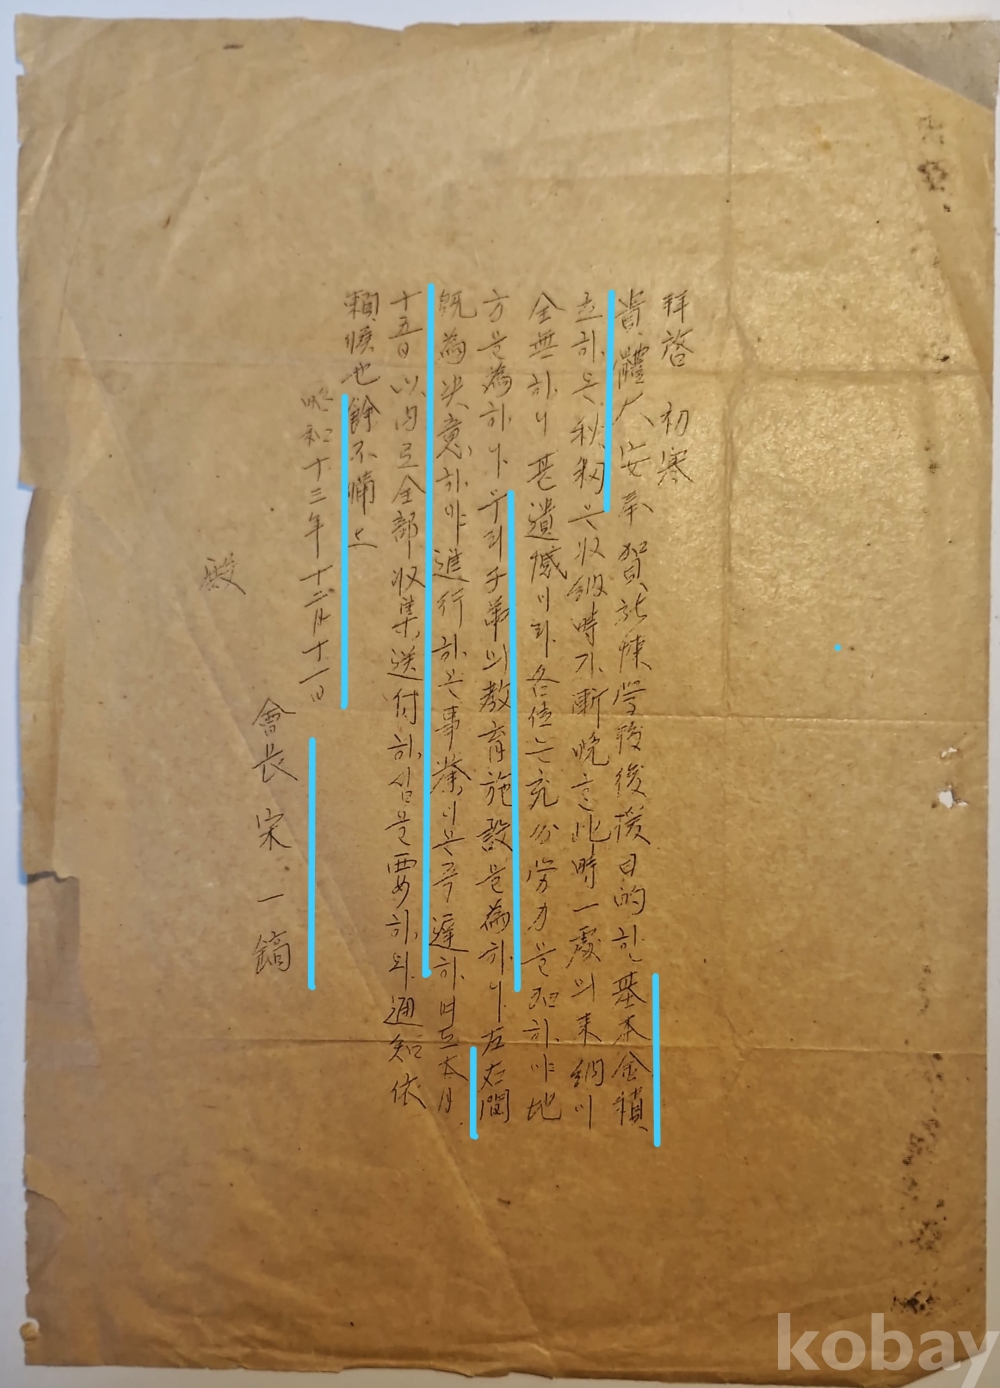 拜啓 初寒
貴體人安奉賀就悚学校後援目的한 基本金積
立하은 秋籾은 收納時가 漸晩한 此時 一處의 来納이
全無하니 甚遺憾이라 各位는 充分労力을 하야 地
方을 為하나 우리 子弟의 教育施設을 為하나 左右間
既為决意하야 進行하는 事業이은즉 遅하며도 本月
十五日 以內로 全部 収集 送付하심을 要하와 通知依
賴候也 餘不備上
昭和十三年十二月十一日
會長 宋一鎬
殿
kobay